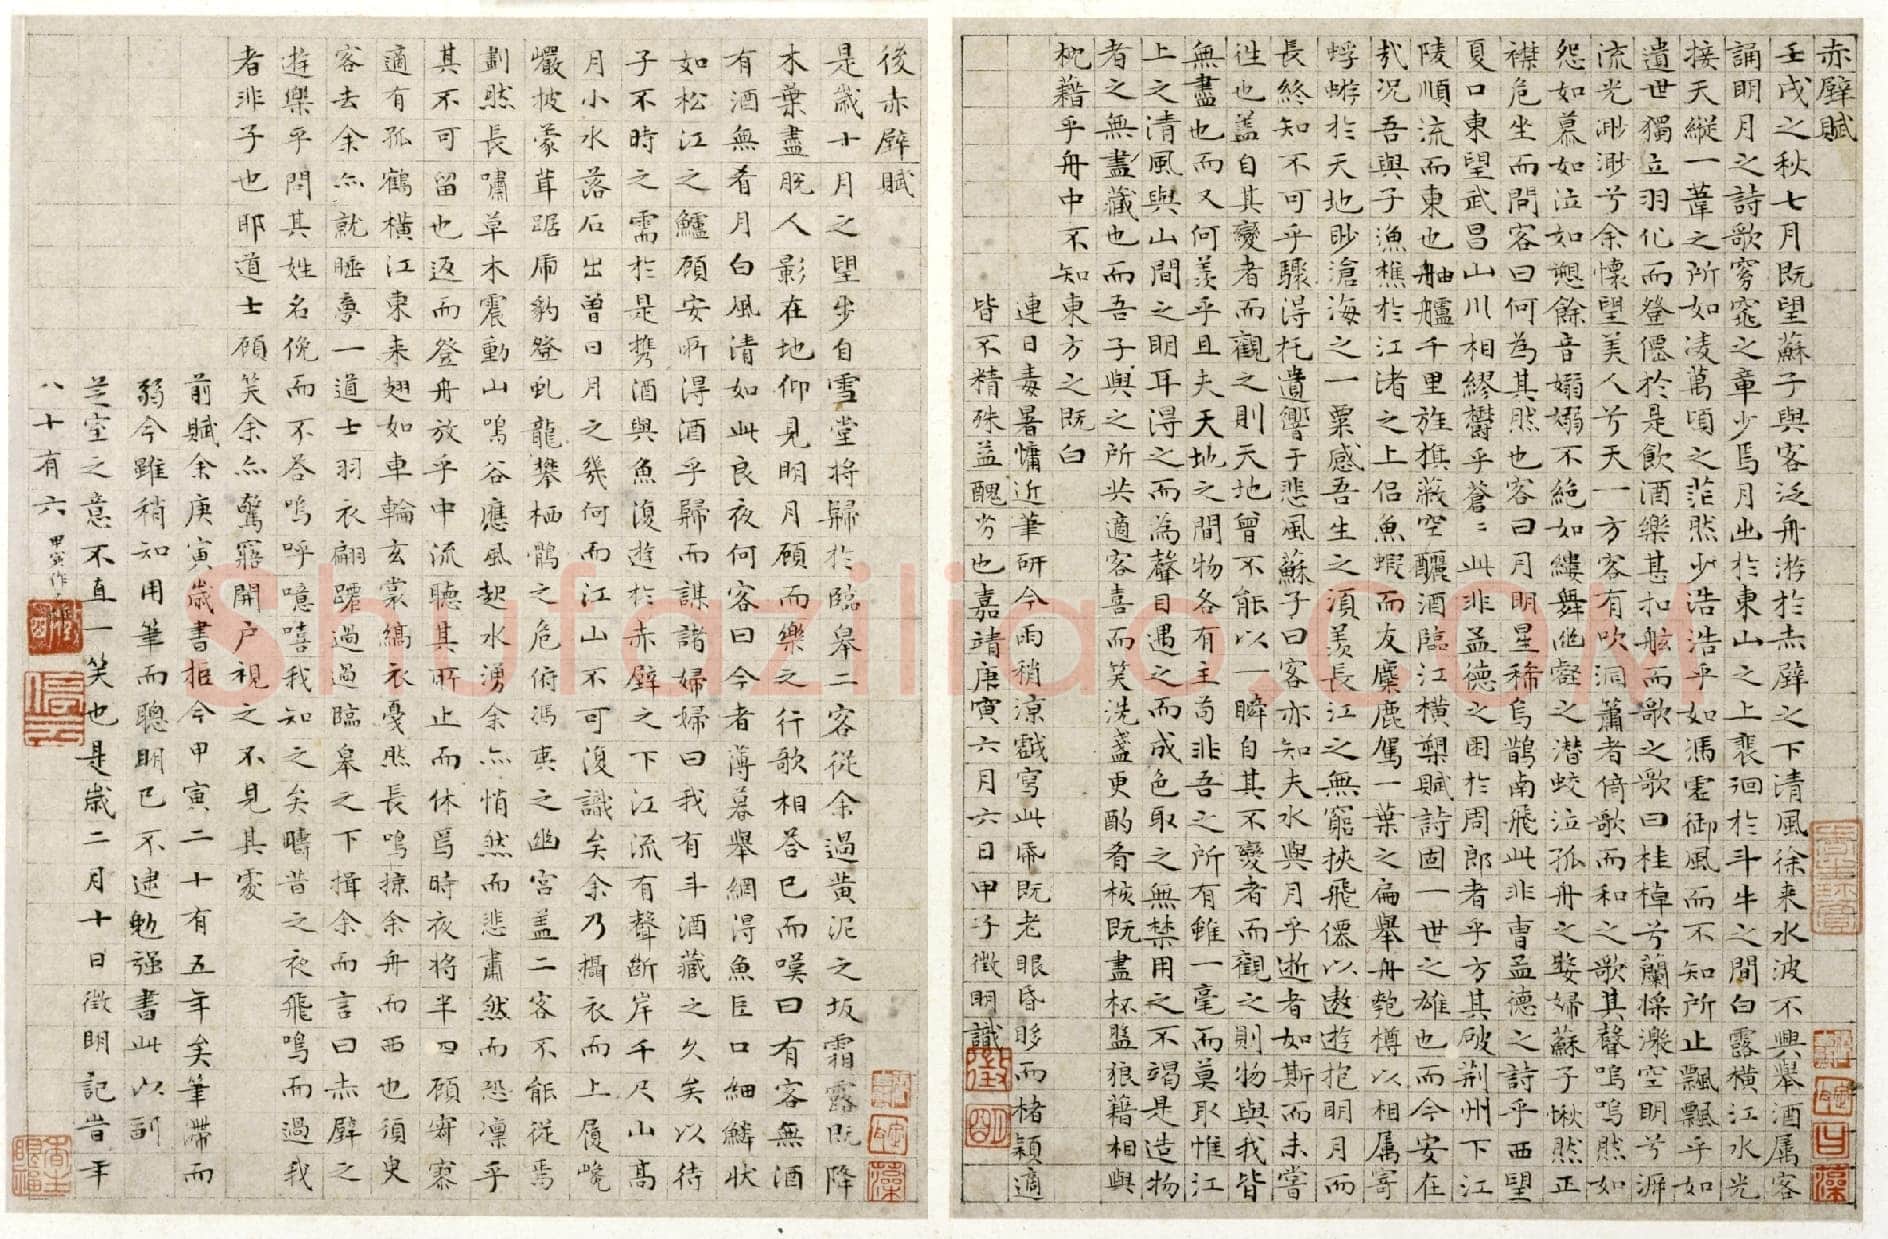 赤壁賦
壬戌之秋七月既望蘇子與客泛舟游於赤壁之下清風徐来水波不興舉酒属客
誦明月之詩歌窈窕之章少焉月出於東山之上裴徊於斗牛之間白露橫江水光
接天縱一葦之所如凌萬頃之茫然浩浩乎如馮虗御風而不知所止飄飄乎如
遺世獨立羽化而登僊於是飲酒樂甚扣舷而歌之歌曰桂棹兮蘭槳擊空明兮泝
流光渺渺兮余懷望美人兮天一方客有吹洞簫者倚歌而和之歌其聲嗚嗚然如
怨如慕如泣如愬餘音嫋嫋不絶如縷舞幽壑之潜蛟泣孤舟之嫠婦蘇子愀然正
襟危坐而問客曰何為其然也客曰月明星稀烏鵲南飛此非曹孟德之詩乎西望
夏口東望武昌山川相繆欝乎蒼〻此非孟德之困於周郎者乎方其破荆州下江
陵順流而東也舳艫千里旌旗蔽空釃酒臨江横槊賦詩固一世之雄也而今安在
㢤况吾與子漁樵於江渚之上侣魚蝦而友麋鹿駕一葉之扁舉舟匏樽以相属寄
蜉蝣於天地眇滄海之一粟感吾生之湏羡長江之無窮挾飛僊以遨遊抱明月而
長終知不可乎驟得托遺響于悲風蘇子曰客亦知夫水與月乎逝者如斯而未嘗
徃也盖自其變者而觀之則天地曾不能以一瞬自其不變者而觀之則物與我皆
無盡也而又何羡乎且夫天地之間物各有主苟非吾之所有雖一毫而莫取惟江
上之清風與山間之明月耳得之而為聲目遇之而成色取之無禁用之不竭是造物
者之無盡藏也而吾子與之所共適客喜而笑洗盞更酌肴核既盡杯盤狼藉相與
枕藉乎舟中不知東方之既白
連日毒暑慵近筆研今雨稍凉戲寫此帋既老眼昏眵而楮穎適
皆不精殊益醜劣也嘉靖庚寅六月六日甲子徵明識
後赤壁賦
是歲十月之望步自雪堂将歸於臨皋二客從余過黄泥之坂霜露既降
木葉盡脱人影在地仰見明月顧而樂之行歌相荅已而嘆曰有客無酒
有酒無肴月白風清如此良夜何客曰今者薄暮舉網得魚巨口細鱗狀
如松江之鱸顧安所得酒乎歸而謀諸婦婦曰我有斗酒藏之久矣以待
子不時之需於是携酒與魚復遊於赤壁之下江流有聲断岸千尺山高
月小水落石出曾日月之幾何而江山不可復識矣余乃攝衣而上履巉
巖披蒙茸踞虎豹登虬龍攀栖鶻之危俯馮夷之幽宫盖二客不能從焉
劃然長嘯草木震動山鳴谷應風起水湧余亦悄然而悲肅然而恐凛乎
其不可留也返而登舟放乎中流聽其所止而休焉時夜将半四顧寂寥
適有孤鶴橫江東来翅如車輪玄裳縞衣戛然長鳴掠余舟而西也須臾
客去余亦就睡夢一道士羽衣翩躚過過臨皋之下揖余而言曰赤壁之
遊樂乎問其姓名俛而不荅嗚呼噫嘻我知之矣疇昔之夜飛鳴而過我
者非子也耶道士顧笑余亦驚寤開户視之不見其處
前賦余庚寅歲書拒今甲寅二十有五年矣筆滯而
弱今雖稍知用筆而聰明已不逮勉强書此以副
芝室之意不直一笑也是歲二月十日徵明記昔年
八十有六
Shufaziliao.COM